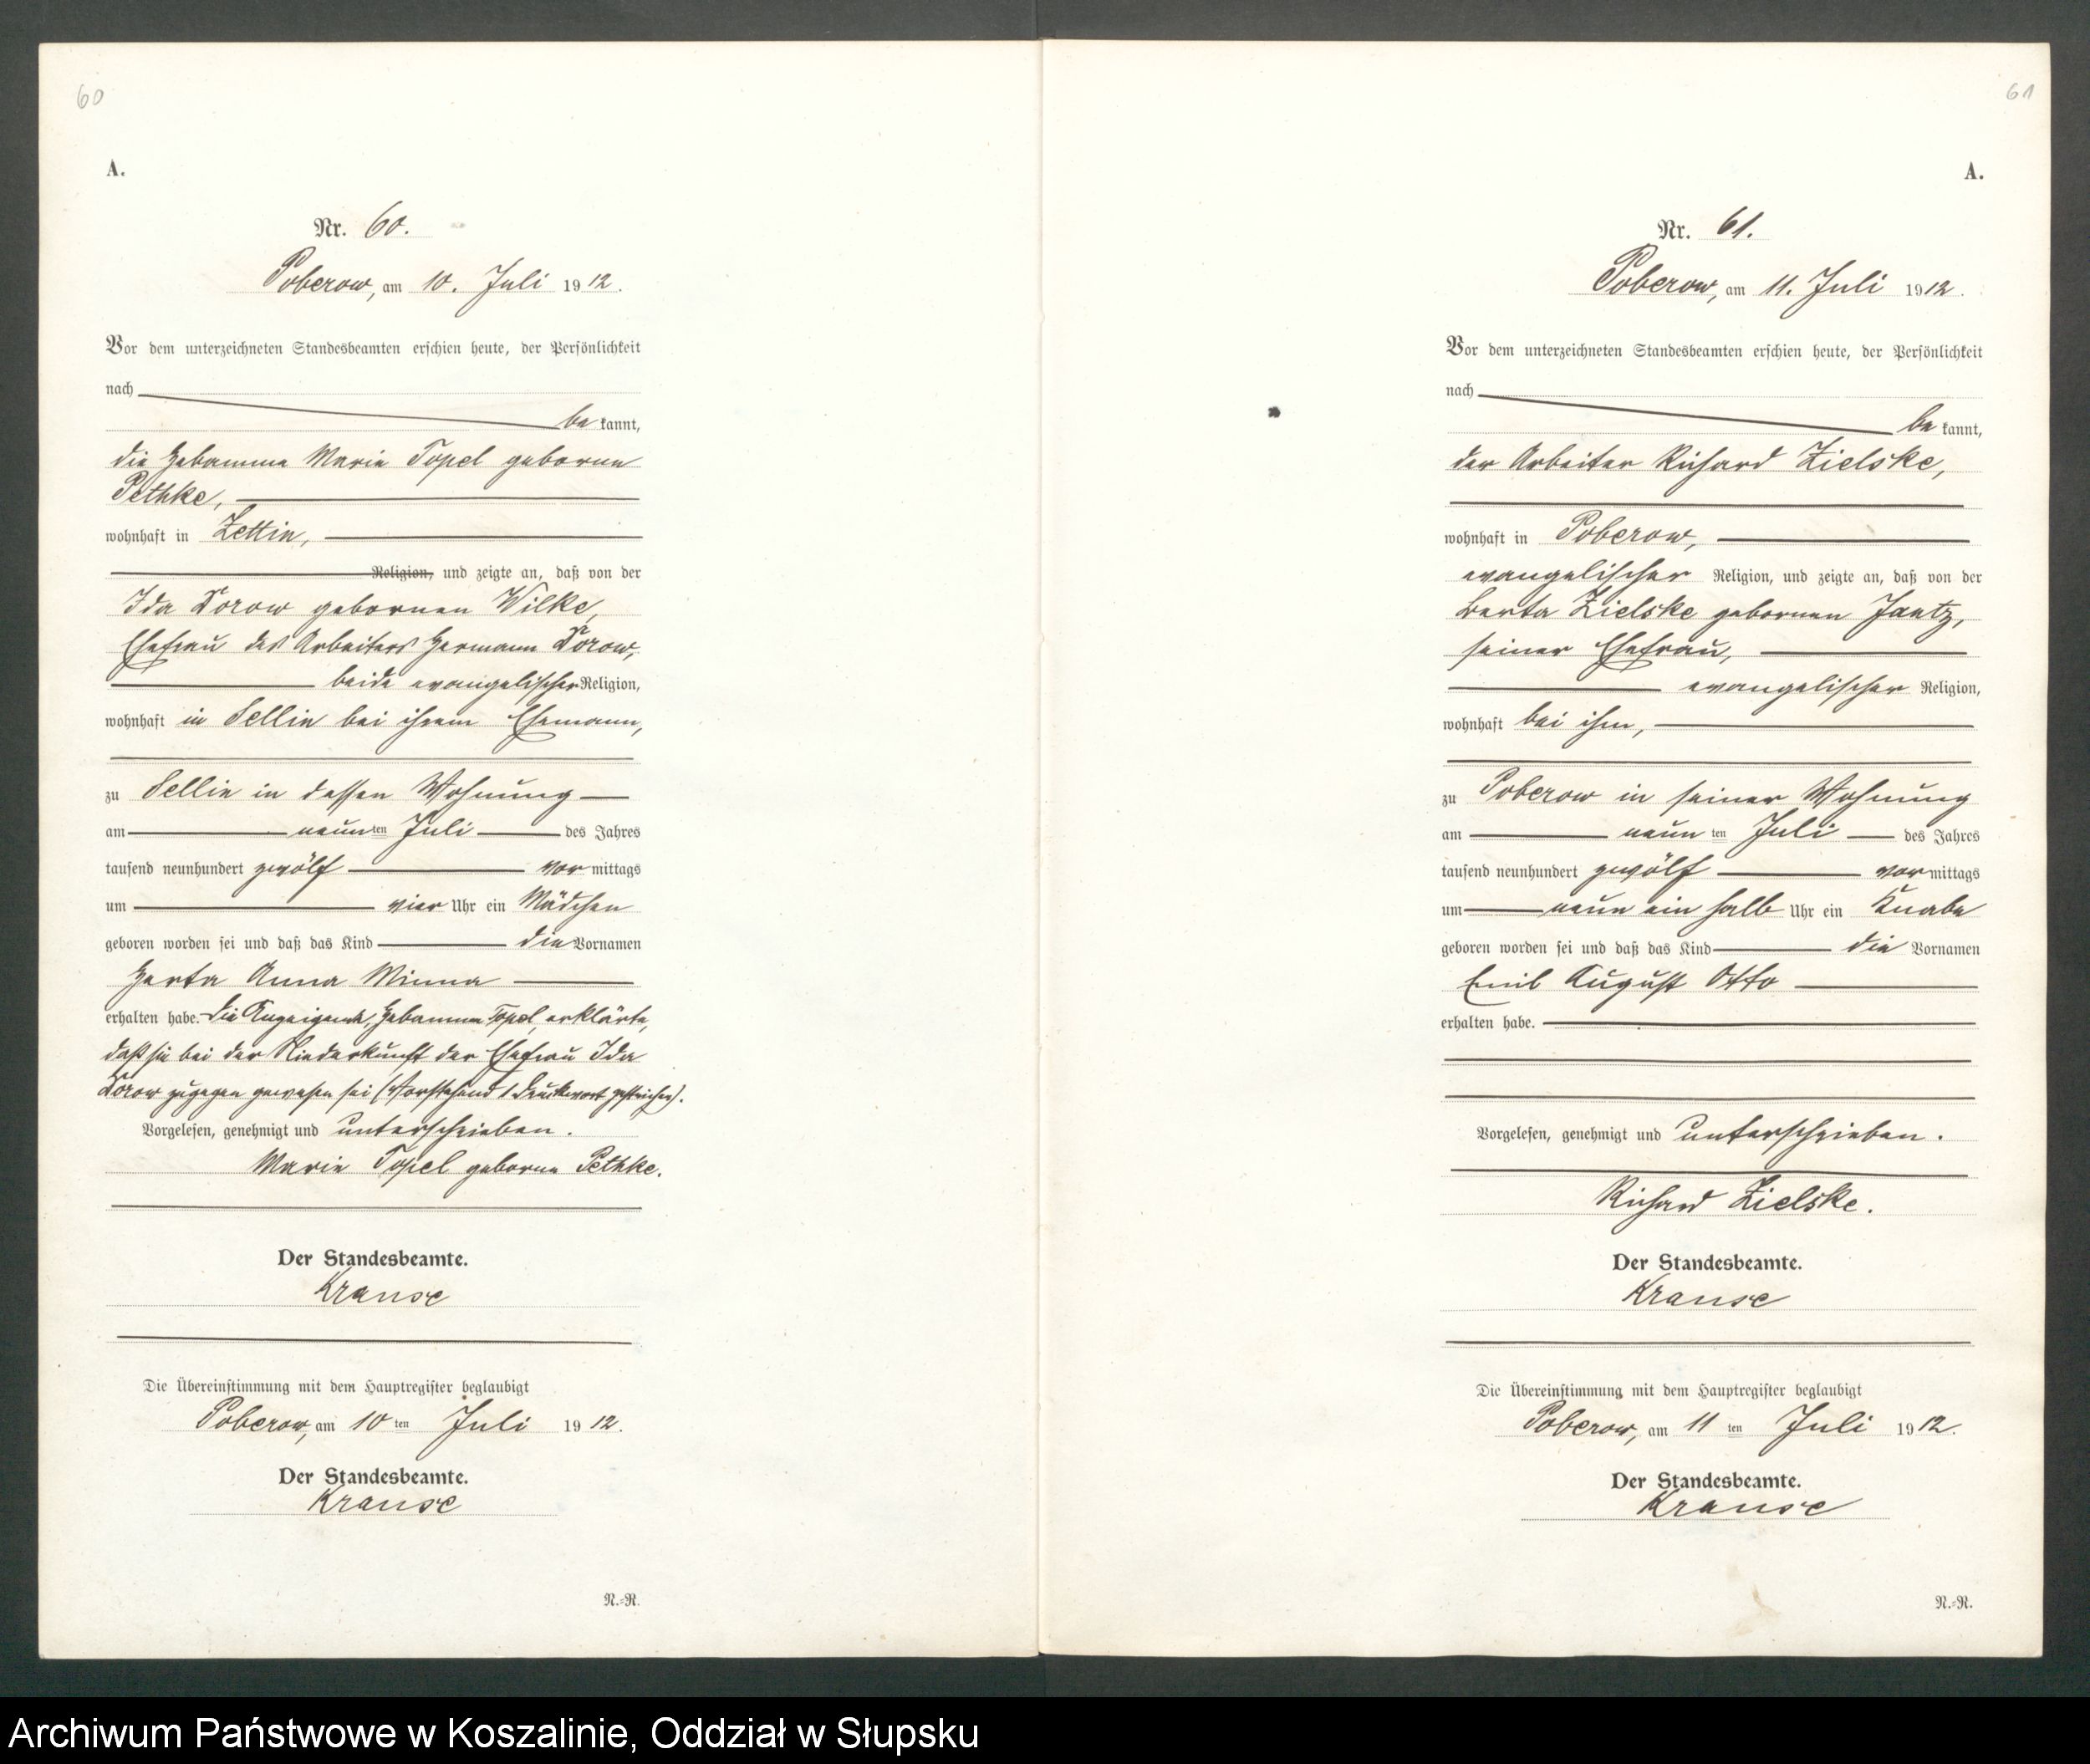 60
A.
Nr. 60.
Poberow, am 10. Juli 1912.
Vor dem unterzeichneten Standesbeamten erschien heute, der Persönlichkeit
nach
be kannt,
die Hebamme Marie Topel geborne
Pethke,
wohnhaft in Zettin,
Religion, und zeigte an, daß von der
Ida Dorow gebornen Wilke,
Ehefrau des Arbeiters Hermann Dorow,
beide evangelischer Religion,
wohnhaft in Sellin bei ihrem Ehemann,
zu Sellin in dessen Wohnung
am neunten Juli des Jahres
tausend neunhundert zwölf vormittags
um vier Uhr ein Mädchen
geboren worden sei und daß das Kind die Vornamen
Herta Anna Minna
erhalten habe. Die Anzeigende, Hebamme Topel, erklärte,
daß sie bei der Niederkunft der Ehefrau Ida
Dorow zugegen gewesen sei (Vorstehend 1 Druckwort gestrichen).
Vorgelesen, genehmigt und unterschrieben.
Marie Topel geborne Pethke.
Der Standesbeamte.
Krause
Die Übereinstimmung mit dem Hauptregister beglaubigt
Poberow, am 10 ten Juli 1912.
Der Standesbeamte.
Krause
N.=R.
61
A.
Nr. 61.
Poberow, am 11. Juli 1912.
Vor dem unterzeichneten Standesbeamten erschien heute, der Persönlichkeit
nach
be kannt,
der Arbeiter Richard Zielske,
wohnhaft in Poberow,
evangelischer Religion, und zeigte an, daß von der
Berta Zielske gebornen Jantz,
seiner Ehefrau,
evangelischer Religion,
wohnhaft bei ihm,
zu Poberow in seiner Wohnung
am neun ten Juli des Jahres
tausend neunhundert zwölf vormittags
um neun ein halb Uhr ein Knabe
geboren worden sei und daß das Kind die Vornamen
Emil August Otto
erhalten habe.
Vorgelesen, genehmigt und unterschrieben.
Richard Zielske.
Der Standesbeamte.
Krause
Die Übereinstimmung mit dem Hauptregister beglaubigt
Poberow, am 11 ten Juli 1912.
Der Standesbeamte.
Krause
N.=R.
Archiwum Państwowe w Koszalinie, Oddział w Słupsku